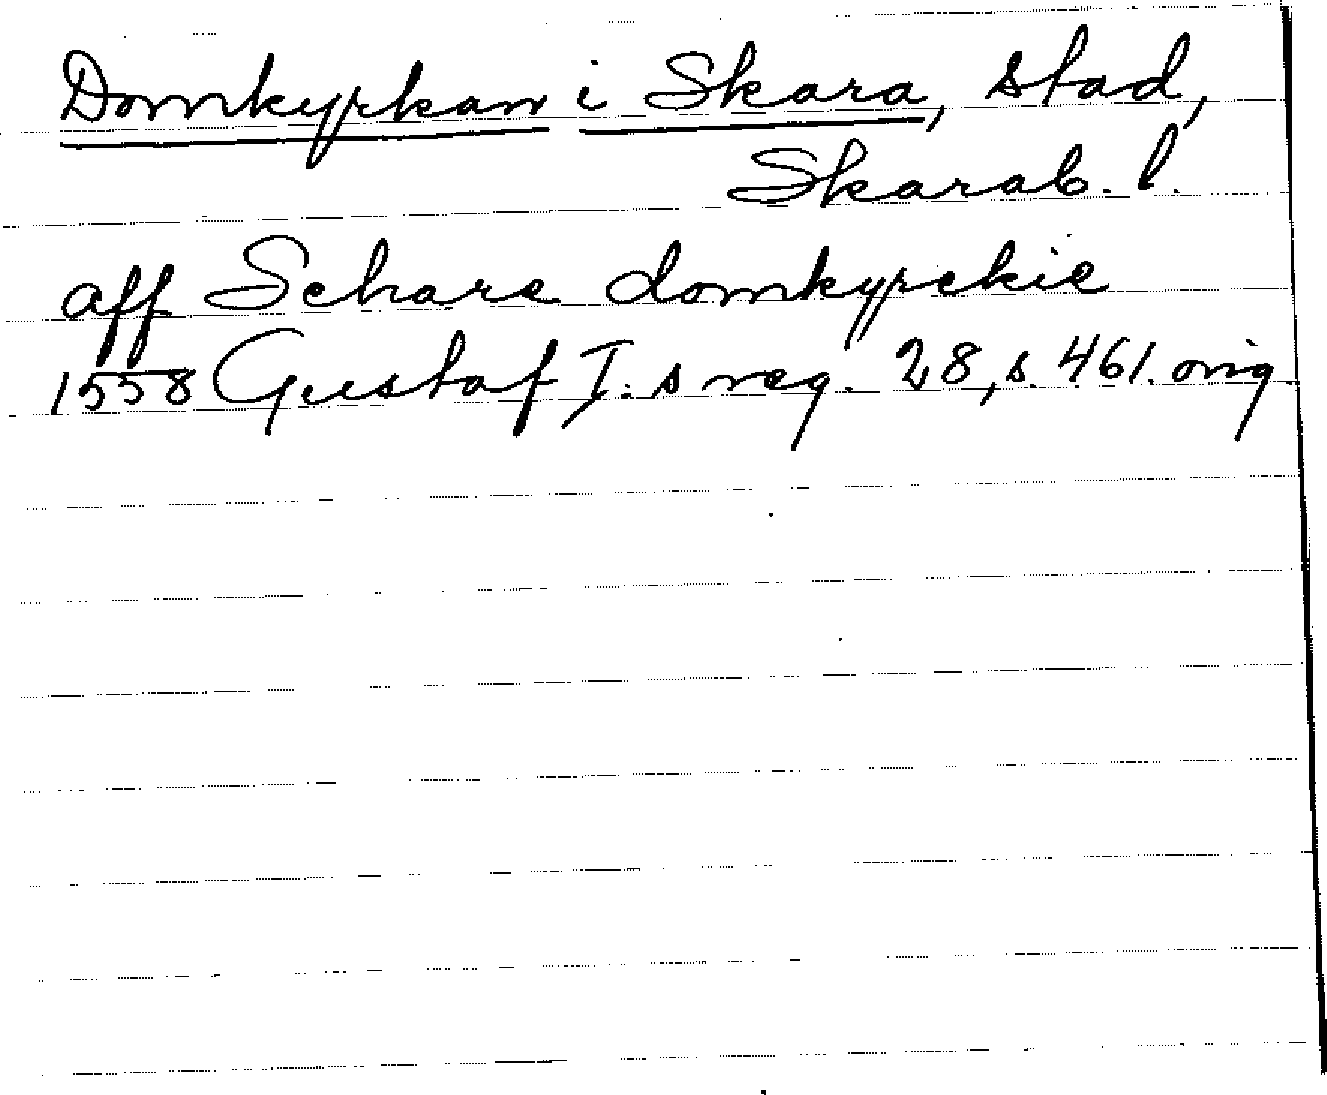 Domkyrkan i Skara, stad,
Skarab. l.
aff Schare domkyrckie
1558 Gustaf I:s reg. 28, s. 461. orig